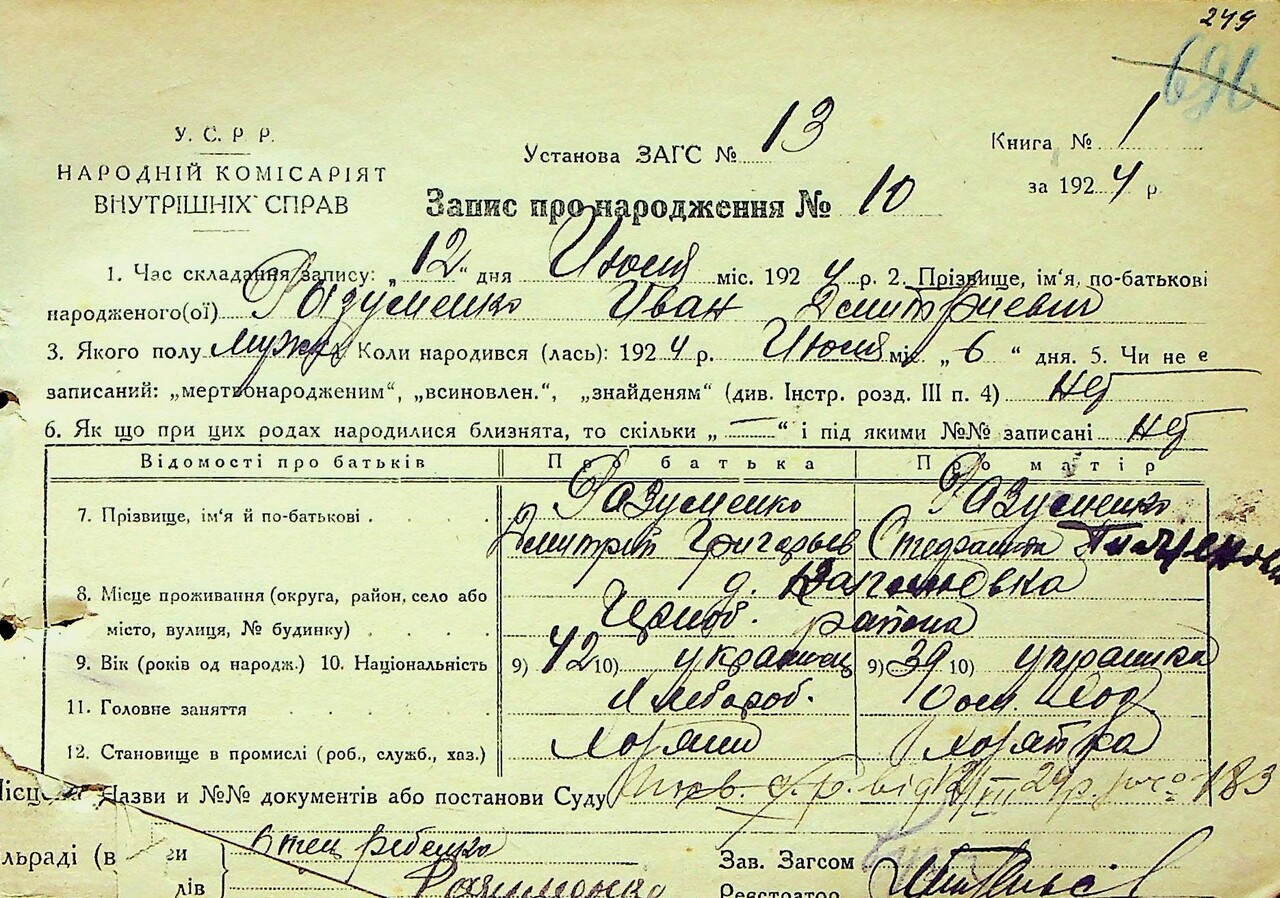 249
696
У. С. Р. Р.
НАРОДНІЙ КОМІСАРІЯТ
ВНУТРІШНІХ СПРАВ
Установа ЗАГС № 13
Книга № 1
за 1924 р.
Запис про народження № 10
1. Час складання запису: „12“ дня Июля міс. 1924 р. 2. Прізвище, ім‘я, по-батькові
народженого(ої) Разуменко Иван Дмитриевич
3. Якого полу мужск Коли народився (лась): 1924 р. Июля міс. „6“ дня. 5. Чи не є
записаний: „мертвонародженим“, „всиновлен.“, „знайденям“ (див. Інстр. розд. III п. 4) нет
6. Як що при цих родах народилися близнята, то скільки „—“ і під якими №№ записані нет
Відомості про батьків Про батька Про матір
7. Прізвище, ім‘я й по-батькові . Разуменко Разуменко
Дмитрий Григорьев Стефанида
8. Місце проживання (округа, район, село або д.
місто, вулиця, № будинку) района
9. Вік (років од народж.) 10. Національність 9) 42 10) украинец 9) 39 10) украинка
11. Головне заняття Хлебороб.
12. Становище в промислі (роб., служб., хаз.) хозяин хозяйка
Назви и №№ документів або постанови Суду 183
Отец ребенка
Разуменко
льраді (в
дів
Зав. Загсом
Реєстратор